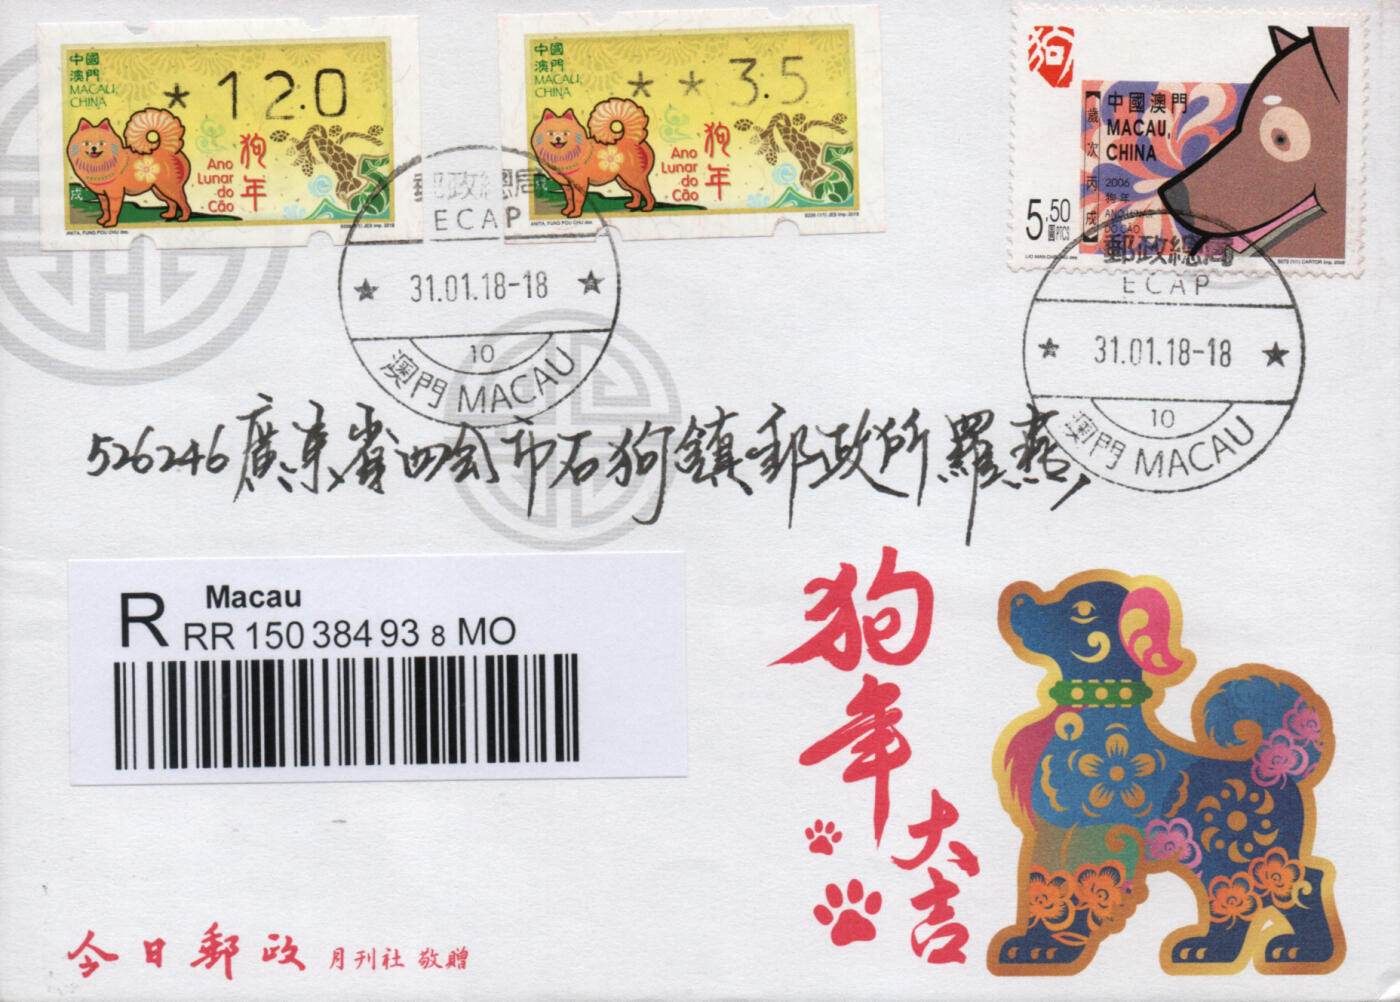 中國
澳門
MACAU,
CHINA
*12.0
戌
Ano
Lunar
do
Cão
狗年
中國
澳門
MACAU,
CHINA
**3.5
戌
Ano
Lunar
do
Cão
狗年
狗
中國澳門
MACAU,
CHINA
【歲次丙戌】
2006
狗年
ANO LUNAR
DO CÃO
5.50
圓PTCS
郵政總局
ECAP
31.01.18-18
10
澳門 MACAU
郵政總局
ECAP
31.01.18-18
10
澳門 MACAU
526246 廣東省四会市石狗鎮郵政所羅燕
R Macau
RR 150 384 93 8 MO
狗年
大吉
今日郵政 月刊社 敬贈